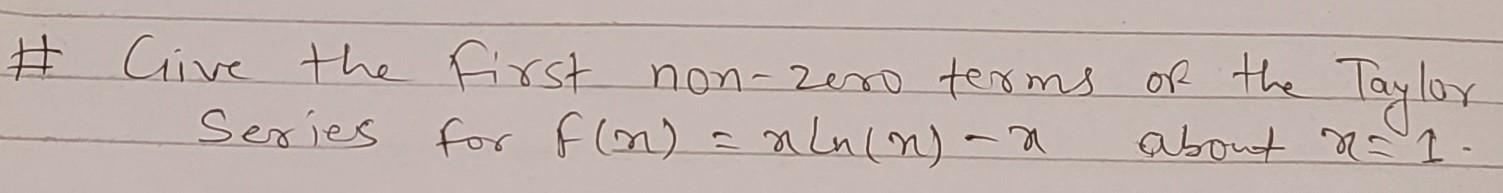 # Give the first non-zero terms of the Taylor
Series for f(x) = x ln(x) - x about x = 1.